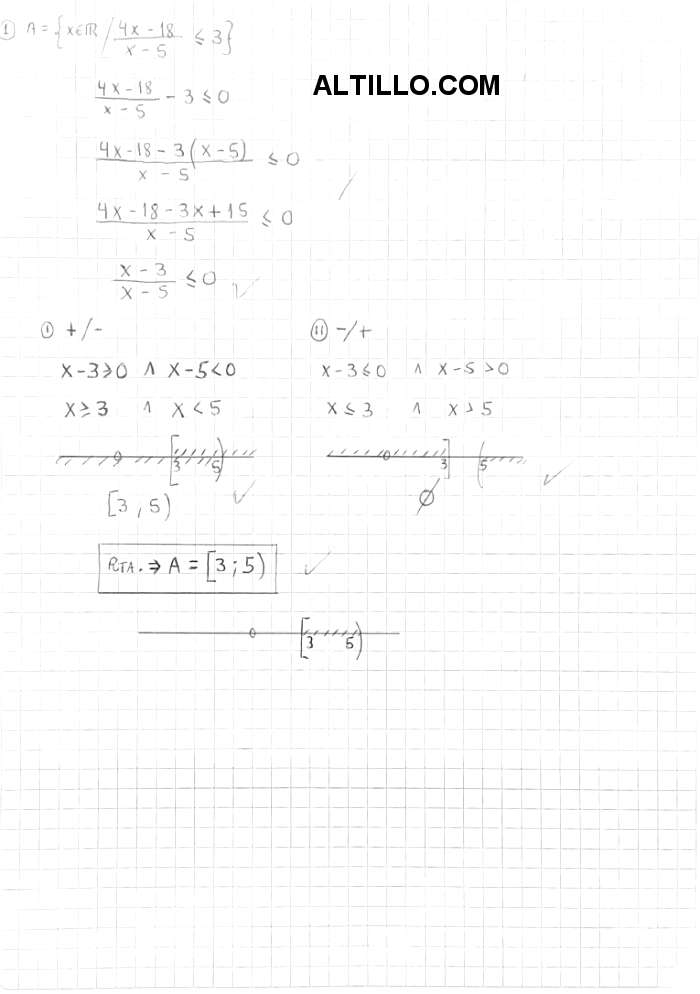 ① A = {x∈ℝ / (4x - 18)/(x - 5) ≤ 3}
ALTILLO.COM
(4x - 18)/(x - 5) - 3 ≤ 0
(4x - 18 - 3(x - 5))/(x - 5) ≤ 0
(4x - 18 - 3x + 15)/(x - 5) ≤ 0
(x - 3)/(x - 5) ≤ 0 ✓
Ⓘ +/-
x - 3 ≥ 0 ∧ x - 5 < 0
x ≥ 3 ∧ x < 5
0 [3 5)
[3 , 5) ✓
ⓘⓘ -/+
x - 3 ≤ 0 ∧ x - 5 > 0
x ≤ 3 ∧ x > 5
0 3] (5
∅ ✓
RTA. ⇒ A = [3 ; 5) ✓
0 [3 5)